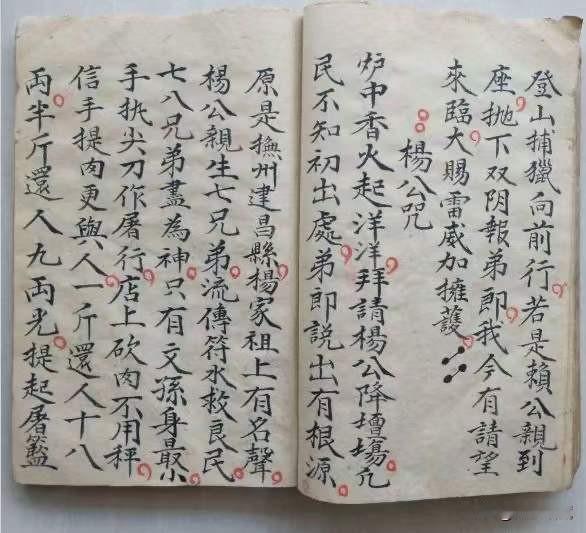 登山捕獵向前行若是賴公親到
座抛下双阴報弟郎我今有請望
來臨大賜雷威加擁護
楊公咒
炉中香火起洋洋拜請楊公降壇塲凢
民不知初出處弟郎説出有根源
原是撫州建昌縣楊家祖上有名聲
楊公親生七兄弟流傳符水救良民
七八兄弟盡為神只有文孫身最小
手执尖刀作屠行店上砍肉不用秤
信手提肉更與人一斤還人十八
两半斤還人九両光提起屠籃